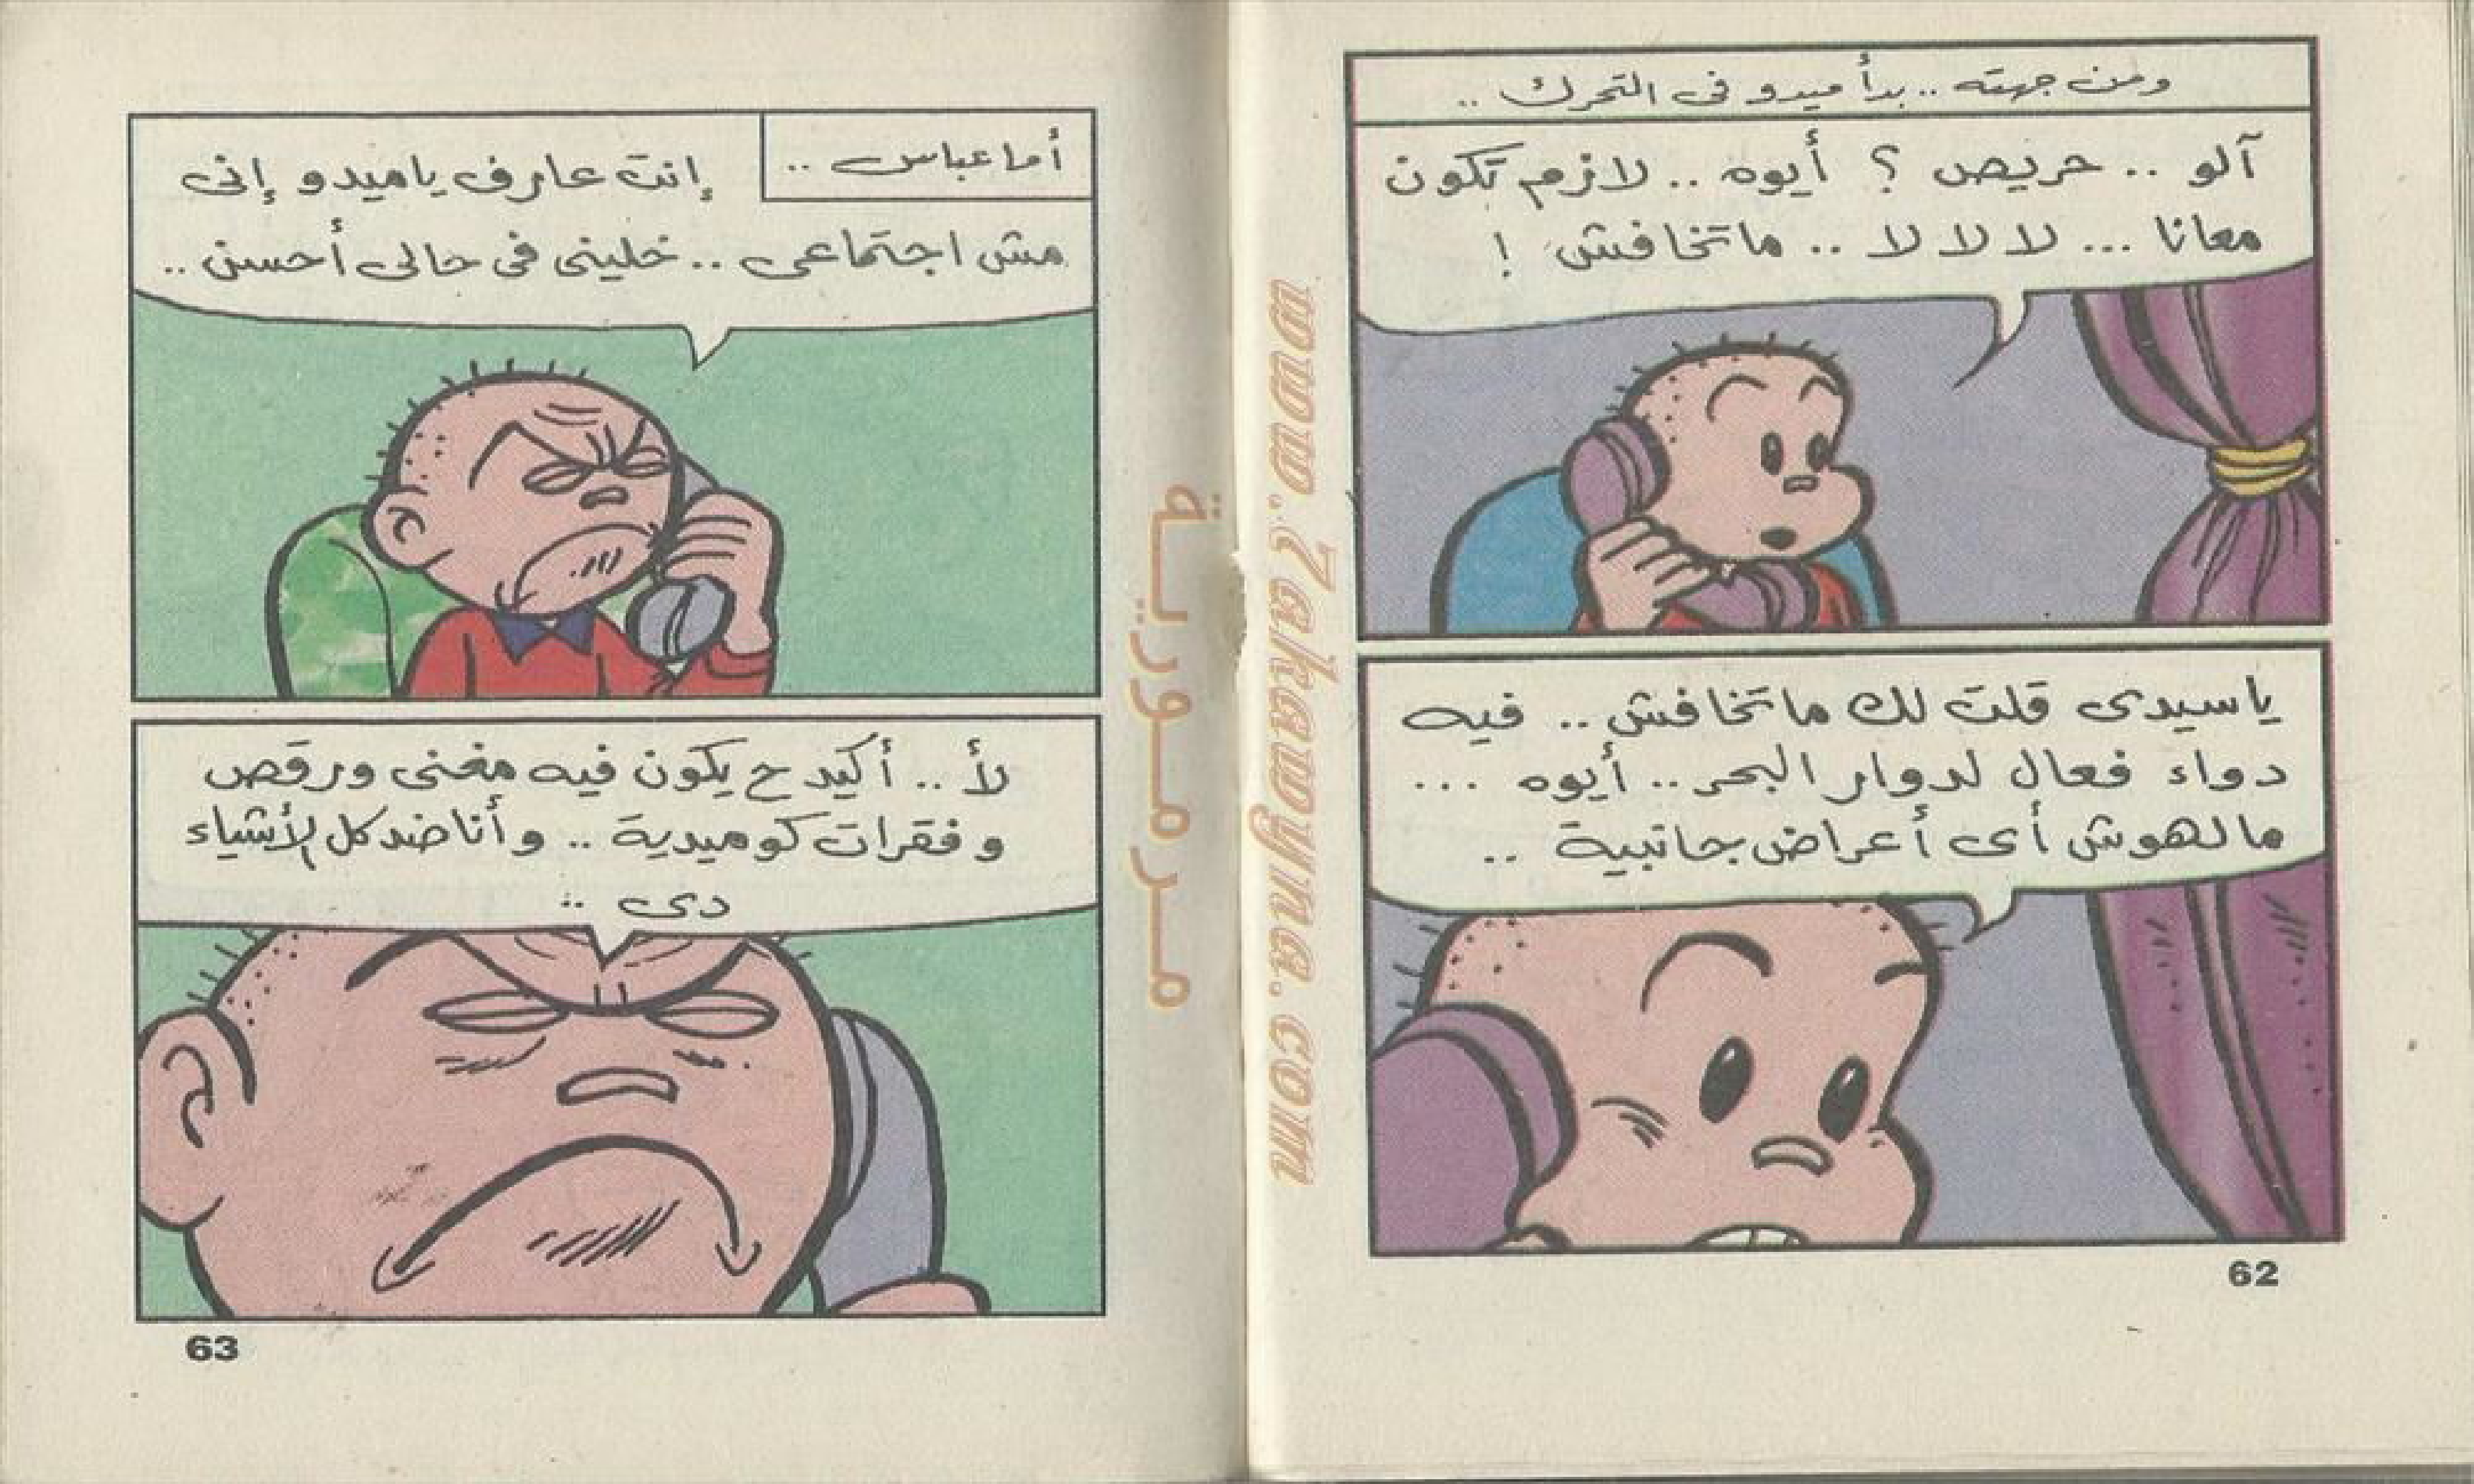 ومن جهته .. بدأ ميدو فى التحرك ..
آلو .. حريص ؟ أيوه .. لازم تكون
معانا ... لا لا لا .. ماتخافش !
ياسيدى قلت لك ماتخافش .. فيه
دواء فعال لدوار البحر .. أيوه ...
مالهوش أى أعراض جانبية ..
62
أما عباس ..
إنت عارف ياميدو إنى
مش اجتماعى .. خلينى فى حالى أحسن ..
لأ .. أكيد ح يكون فيه مغنى ورقص
وفقرات كوميدية .. وأنا ضد كل الأشياء
دى ..
63
www.Zakawyna.com
مرمورية